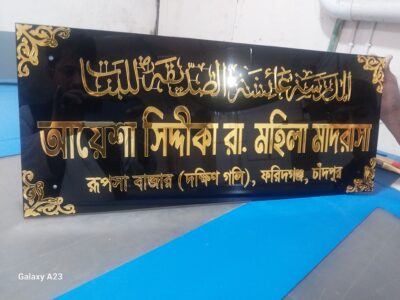 المدرسة عائشة الصديقة للبنات
আয়েশা সিদ্দীকা রা. মহিলা মাদরাসা
রূপসা বাজার (দক্ষিণ গলি), ফরিদগঞ্জ, চাঁদপুর
Galaxy A23